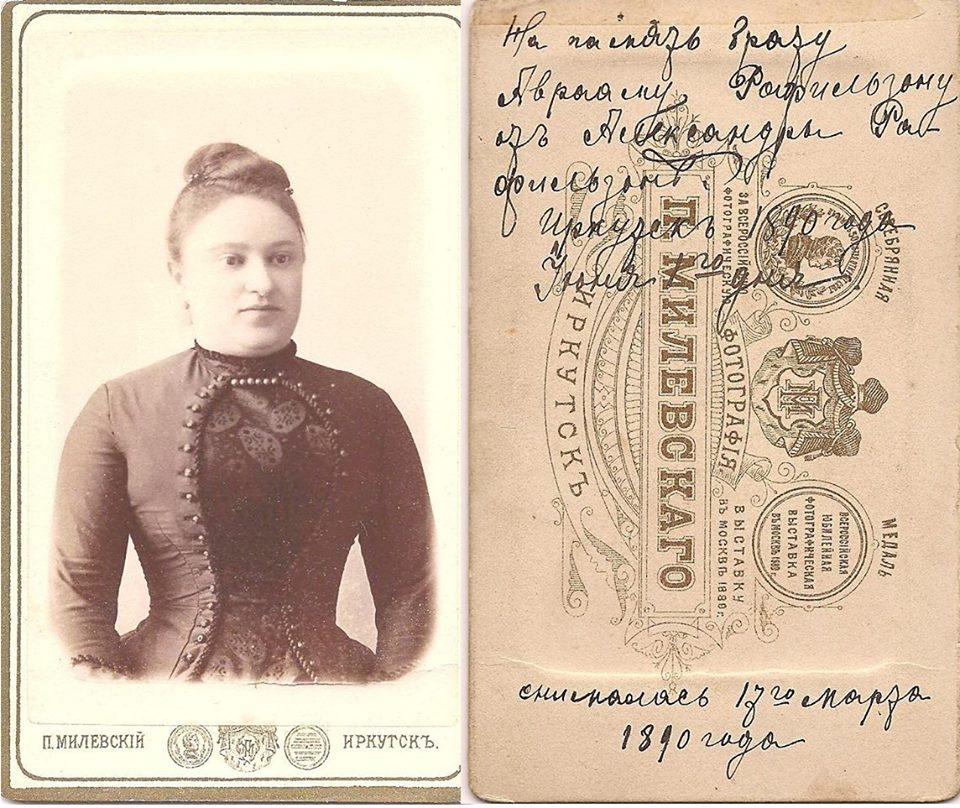 П. МИЛЕВСКІЙ
ИРКУТСКЪ.
На память брату
Аврааму Рафильзону
отъ Александры Ра-
фильзонъ.
Иркутскъ 1890 года
Іюня 1го дня
СЕРЕБРЯНАЯ
МЕДАЛЬ
ЗА ВСЕРОССІЙ
ФОТОГРАФИЧЕСКУЮ
ВЫСТАВКУ
ВЪ МОСКВѢ 1889 г.
ФОТОГРАФІЯ
П. МИЛЕВСКАГО
ИРКУТСКЪ
ВСЕРОССІЙСКАЯ
ЮБИЛЕЙНАЯ
ФОТОГРАФИЧЕСКАЯ
ВЫСТАВКА
ВЪ МОСКВѢ 1889 г.
снималась 17го марта
1890 года